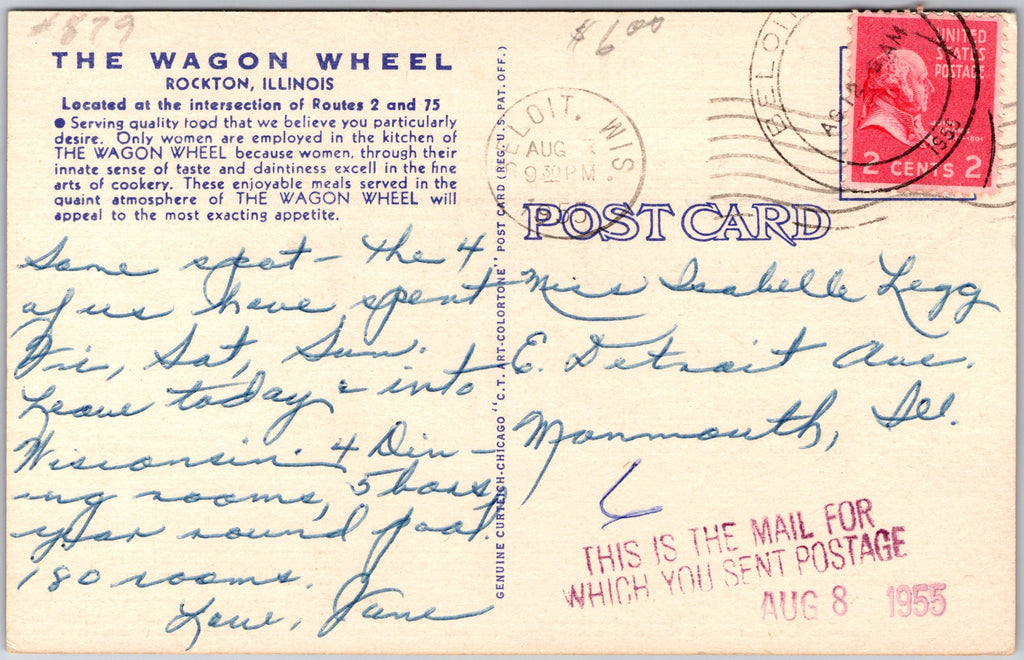 #879
$6.00
THE WAGON WHEEL
ROCKTON, ILLINOIS
Located at the intersection of Routes 2 and 75
● Serving quality food that we believe you particularly
desire. Only women are employed in the kitchen of
THE WAGON WHEEL because women, through their
innate sense of taste and daintiness excell in the fine
arts of cookery. These enjoyable meals served in the
quaint atmosphere of THE WAGON WHEEL will
appeal to the most exacting appetite.
Some spot - the 4
of us have spent
Fri, Sat, Sun.
Leave today & into
Wisconsin. 4 Din-
ing rooms, 5 bars,
year round pool.
180 rooms.
Love, Jane
GENUINE CURTEICH-CHICAGO "C.T. ART-COLORTONE" POST CARD (REG. U.S. PAT. OFF.)
BELOIT, WIS.
AUG
9 30 PM
1955
BELOIT
AUG 12
AM
1955
UNITED
STATES
POSTAGE
2 CENTS 2
POST CARD
Miss Isabelle Legg
E. Detroit Ave.
Monmouth, Ill.
THIS IS THE MAIL FOR
WHICH YOU SENT POSTAGE
AUG 8 1955